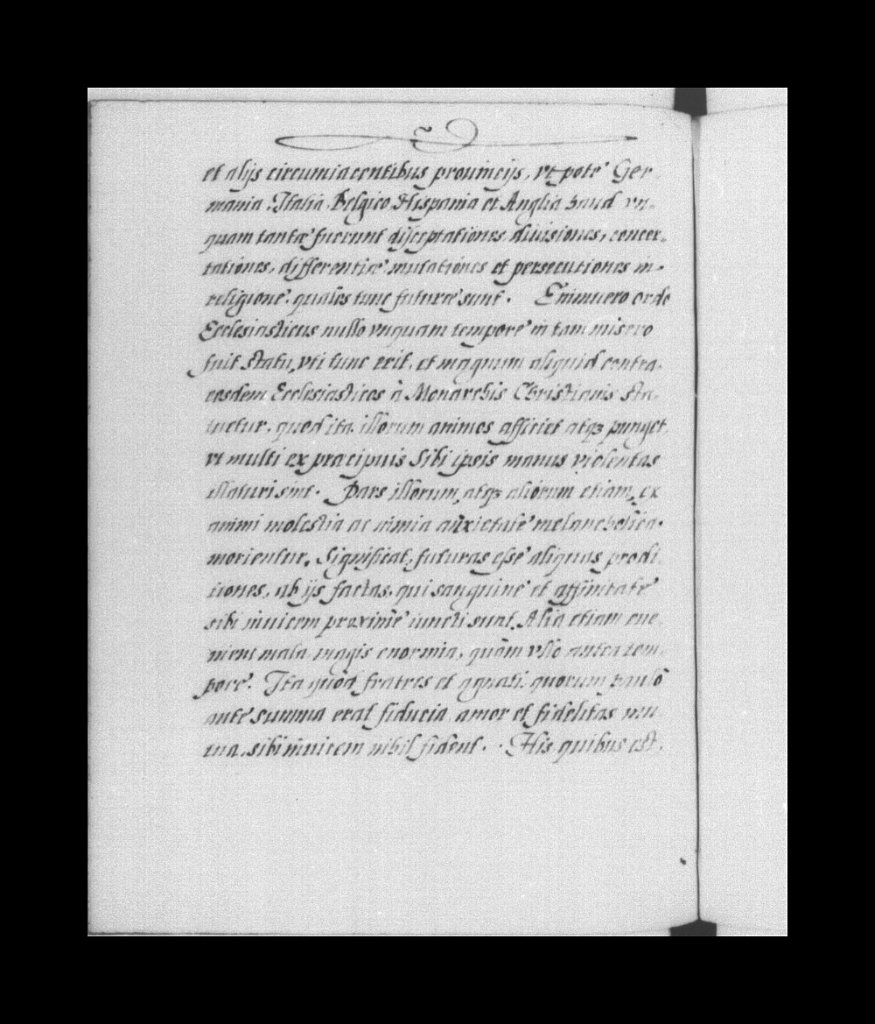 et alijs circumiacentibus prouincijs, vt pote Ger-
mania. Italia. Belgico Hispania et Anglia haud vn-
quam tantæ fuerunt disceptationes diuisiones, concer-
tationes, differentiæ mutationes et persecutiones in
religione. quales tunc futuræ sunt. Enimuero ordo
Ecclesiasticus nullo vnquam tempore in tam misero
fuit statu, vti tunc erit, et magnum aliquid contra.
eosdem Ecclesiasticos à Monarchis Christianis sta-
tuetur, quod ita illorum animos afficiet atqꝫ punget
vt multi ex præcipuis sibi ipsis manus violentas
illaturi sint. Pars illorum, atqꝫ aliorum etiam, ex
animi molestia ac nimia anxietate melancholica.
morientur. Significat, futuras esse aliquas prodi-
tiones, ab ijs factas, qui sanguine et affinitate
sibi inuicem proxime iuncti sunt. Alia etiam eue-
nient mala magis enormia, quàm vllo antea tem-
pore. Ita quòd fratres et agnati, quorum paulò
ante summa erat fiducia, amor et fidelitas mu-
tua, sibi inuicem nihil fident. His quibus est.